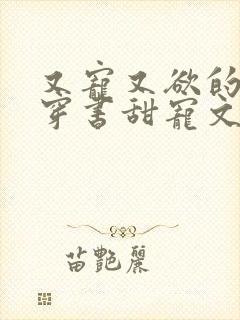 又寵又欲的
穿書甜寵文
苗艷麗